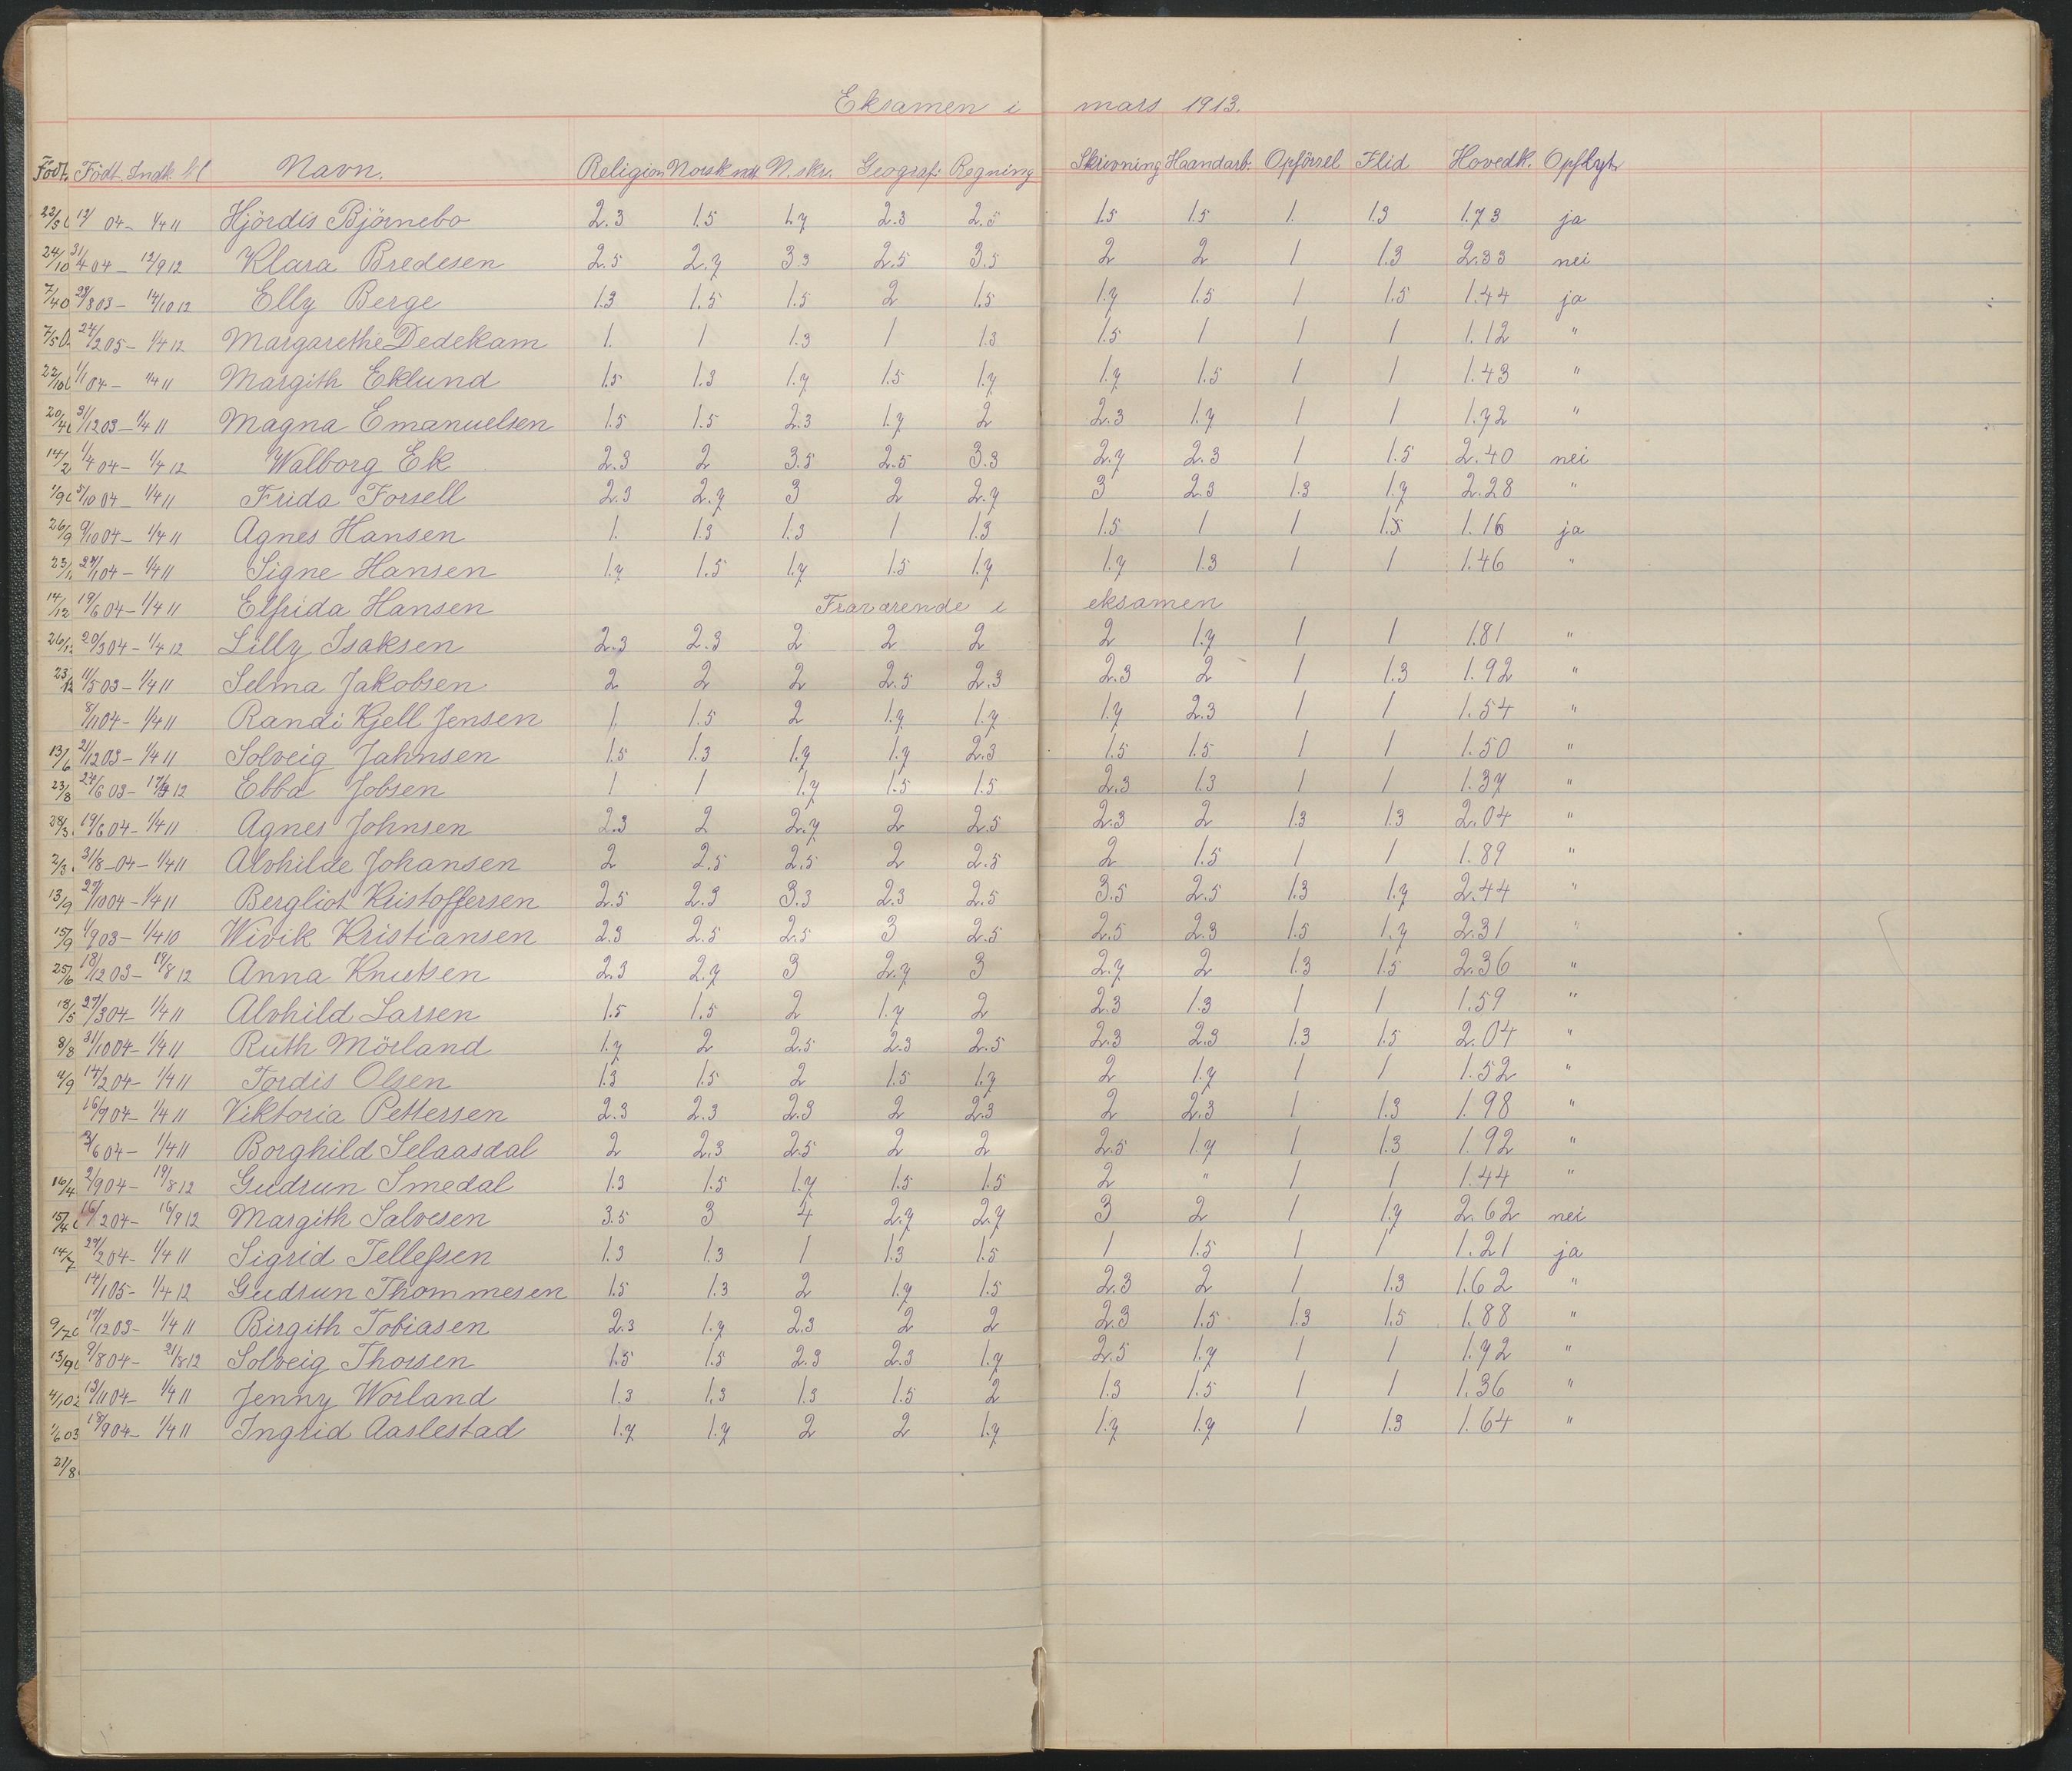 Eksamen i mars 1913.
Födt. Födt. Indk. kl Navn. Religion Norsk mdt. N. skr. Geografi Regning Skrivning Haandarb. Opförsel Flid Hovedk. Opflyt.
22/3 04 - 1/4 11 Hjördis Björnebo 2.3 1.5 1.7 2.3 2.5 1.5 1.5 1. 1.3 1.73 ja
24/10 31/4 04 - 12/9 12 Klara Bredesen 2.5 2.7 3.3 2.5 3.5 2 2 1 1.3 2.33 nei
7/4 0 28/8 03 - 14/10 12 Elly Berge 1.3 1.5 1.5 2 1.5 1.7 1.5 1 1.5 1.44 ja
7/5 0 24/2 05 - 1/4 12 Margarethe Dedekam 1. 1 1.3 1 1.3 1.5 1 1 1 1.12 "
22/10 1/1 04 - 1/4 11 Margith Eklund 1.5 1.3 1.7 1.5 1.7 1.7 1.5 1 1 1.43 "
20/4 31/12 03 - 1/4 11 Magna Emanuelsen 1.5 1.5 2.3 1.7 2 2.3 1.7 1 1 1.72 "
14/2 1/4 04 - 1/4 12 Walborg Ek 2.3 2 3.5 2.5 3.3 2.7 2.3 1 1.5 2.40 nei
1/9 5/10 04 - 1/4 11 Frida Forsell 2.3 2.7 3 2 2.7 3 2.3 1.3 1.7 2.28 "
26/9 9/10 04 - 1/4 11 Agnes Hansen 1. 1.3 1.3 1 1.3 1.5 1 1 1.16 ja
23/11 27/1 04 - 1/4 11 Signe Hansen 1.7 1.5 1.7 1.5 1.7 1.7 1.3 1 1 1.46 "
14/12 19/6 04 - 1/4 11 Elfrida Hansen Fraværende i eksamen
26/12 20/3 04 - 1/4 12 Lilly Isaksen 2.3 2.3 2 2 2 2 1.7 1 1 1.81 "
23/12 11/5 03 - 1/4 11 Selma Jakobsen 2 2 2 2.5 2.3 2.3 2 1 1.3 1.92 "
8/11 04 - 1/4 11 Randi Kjell Jensen 1. 1.5 2 1.7 1.7 1.7 2.3 1 1 1.54 "
13/6 21/12 03 - 1/4 11 Solveig Jahnsen 1.5 1.3 1.7 1.7 2.3 1.5 1.5 1 1 1.50 "
23/8 24/6 03 - 12 Ebba Jobsen 1 1 1.7 1.5 1.5 2.3 1.3 1 1 1.37 "
28/3 19/6 04 - 1/4 11 Agnes Johnsen 2.3 2 2.7 2 2.5 2.3 2 1.3 1.3 2.04 "
2/3 31/8 - 04 - 1/4 11 Alvhilde Johansen 2 2.5 2.5 2 2.5 2 1.5 1 1 1.89 "
13/9 27/10 04 - 1/4 11 Bergliot Kristoffersen 2.5 2.3 3.3 2.3 2.5 3.5 2.5 1.3 1.7 2.44 "
15/9 1/9 03 - 1/4 10 Wivik Kristiansen 2.3 2.5 2.5 3 2.5 2.5 2.3 1.5 1.7 2.31 "
25/6 18/12 03 - 19/8 12 Anna Knutsen 2.3 2.7 3 2.7 3 2.7 2 1.3 1.5 2.36 "
18/5 27/3 04 - 1/4 11 Alvhild Larsen 1.5 1.5 2 1.7 2 2.3 1.3 1 1 1.59 "
8/8 31/10 04 - 1/4 11 Ruth Mörland 1.7 2 2.5 2.3 2.5 2.3 2.3 1.3 1.5 2.04 "
4/9 14/2 04 - 1/4 11 Tordis Olsen 1.3 1.5 2 1.5 1.7 2 1.7 1 1 1.52 "
16/7 04 - 1/4 11 Viktoria Pettersen 2.3 2.3 2.3 2 2.3 2 2.3 1 1.3 1.98 "
3/6 04 - 1/4 11 Borghild Selaasdal 2 2.3 2.5 2 2 2.5 1.7 1 1.3 1.92 "
16/4 2/9 04 - 19/8 12 Gudrun Smedal 1.3 1.5 1.7 1.5 1.5 2 " 1 1 1.44 "
15/4 16/2 04 - 16/9 12 Margith Salvesen 3.5 3 4 2.7 2.7 3 2 1 1.7 2.62 nei
14/7 29/2 04 - 1/4 11 Sigrid Tellefsen 1.3 1.3 1 1.3 1.5 1 1.5 1 1 1.21 ja
14/1 05 - 1/4 12 Gudrun Thommesen 1.5 1.3 2 1.7 1.5 2.3 2 1 1.3 1.62 "
9/7 0 19/12 03 - 1/4 11 Birgith Tobiasen 2.3 1.7 2.3 2 2 2.3 1.5 1.3 1.5 1.88 "
13/9 9/8 04 - 21/8 12 Solveig Thorsen 1.5 1.5 2.3 2.3 1.7 2.5 1.7 1 1 1.72 "
4/10 13/11 04 - 1/4 11 Jenny Worland 1.3 1.3 1.3 1.5 2 1.3 1.5 1 1 1.36 "
1/6 03 18/9 04 - 1/4 11 Ingrid Aaslestad 1.7 1.7 2 2 1.7 1.7 1.7 1 1.3 1.64 "
31/8